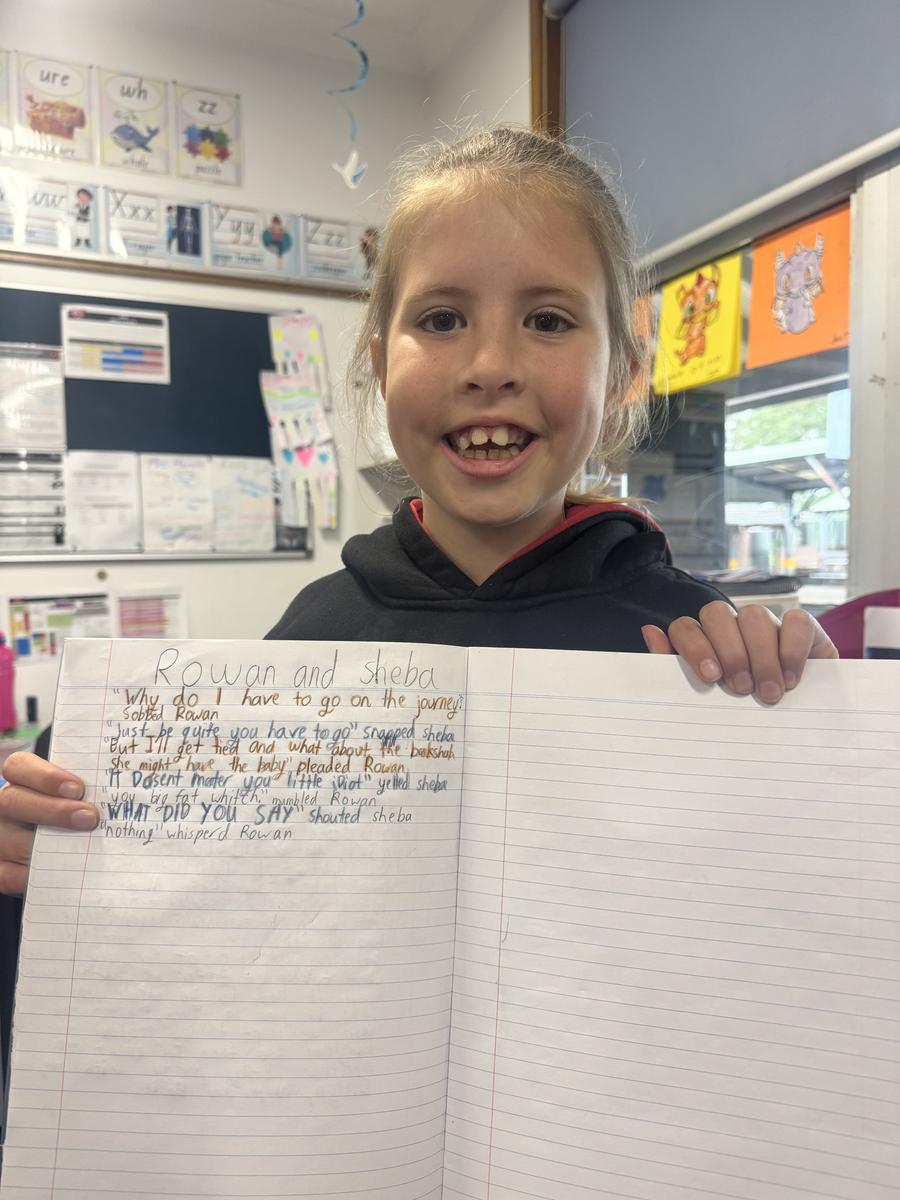 ure
wh
whale
zz
puzzle
Xxx
Yyy
Zzz
Rowan and sheba
"Why do I have to go on the journey?
sobbed Rowan
"just be quite you have to go" snapped sheba
"But I'll get tied and what about the bookshah
she might have the baby" pleaded Rowan
"it Dosent mater you little idiot" yelled sheba
"you big fat whitch." mumbled Rowan
"WHAT DID YOU SAY" shouted sheba
"nothing" whisperd Rowan